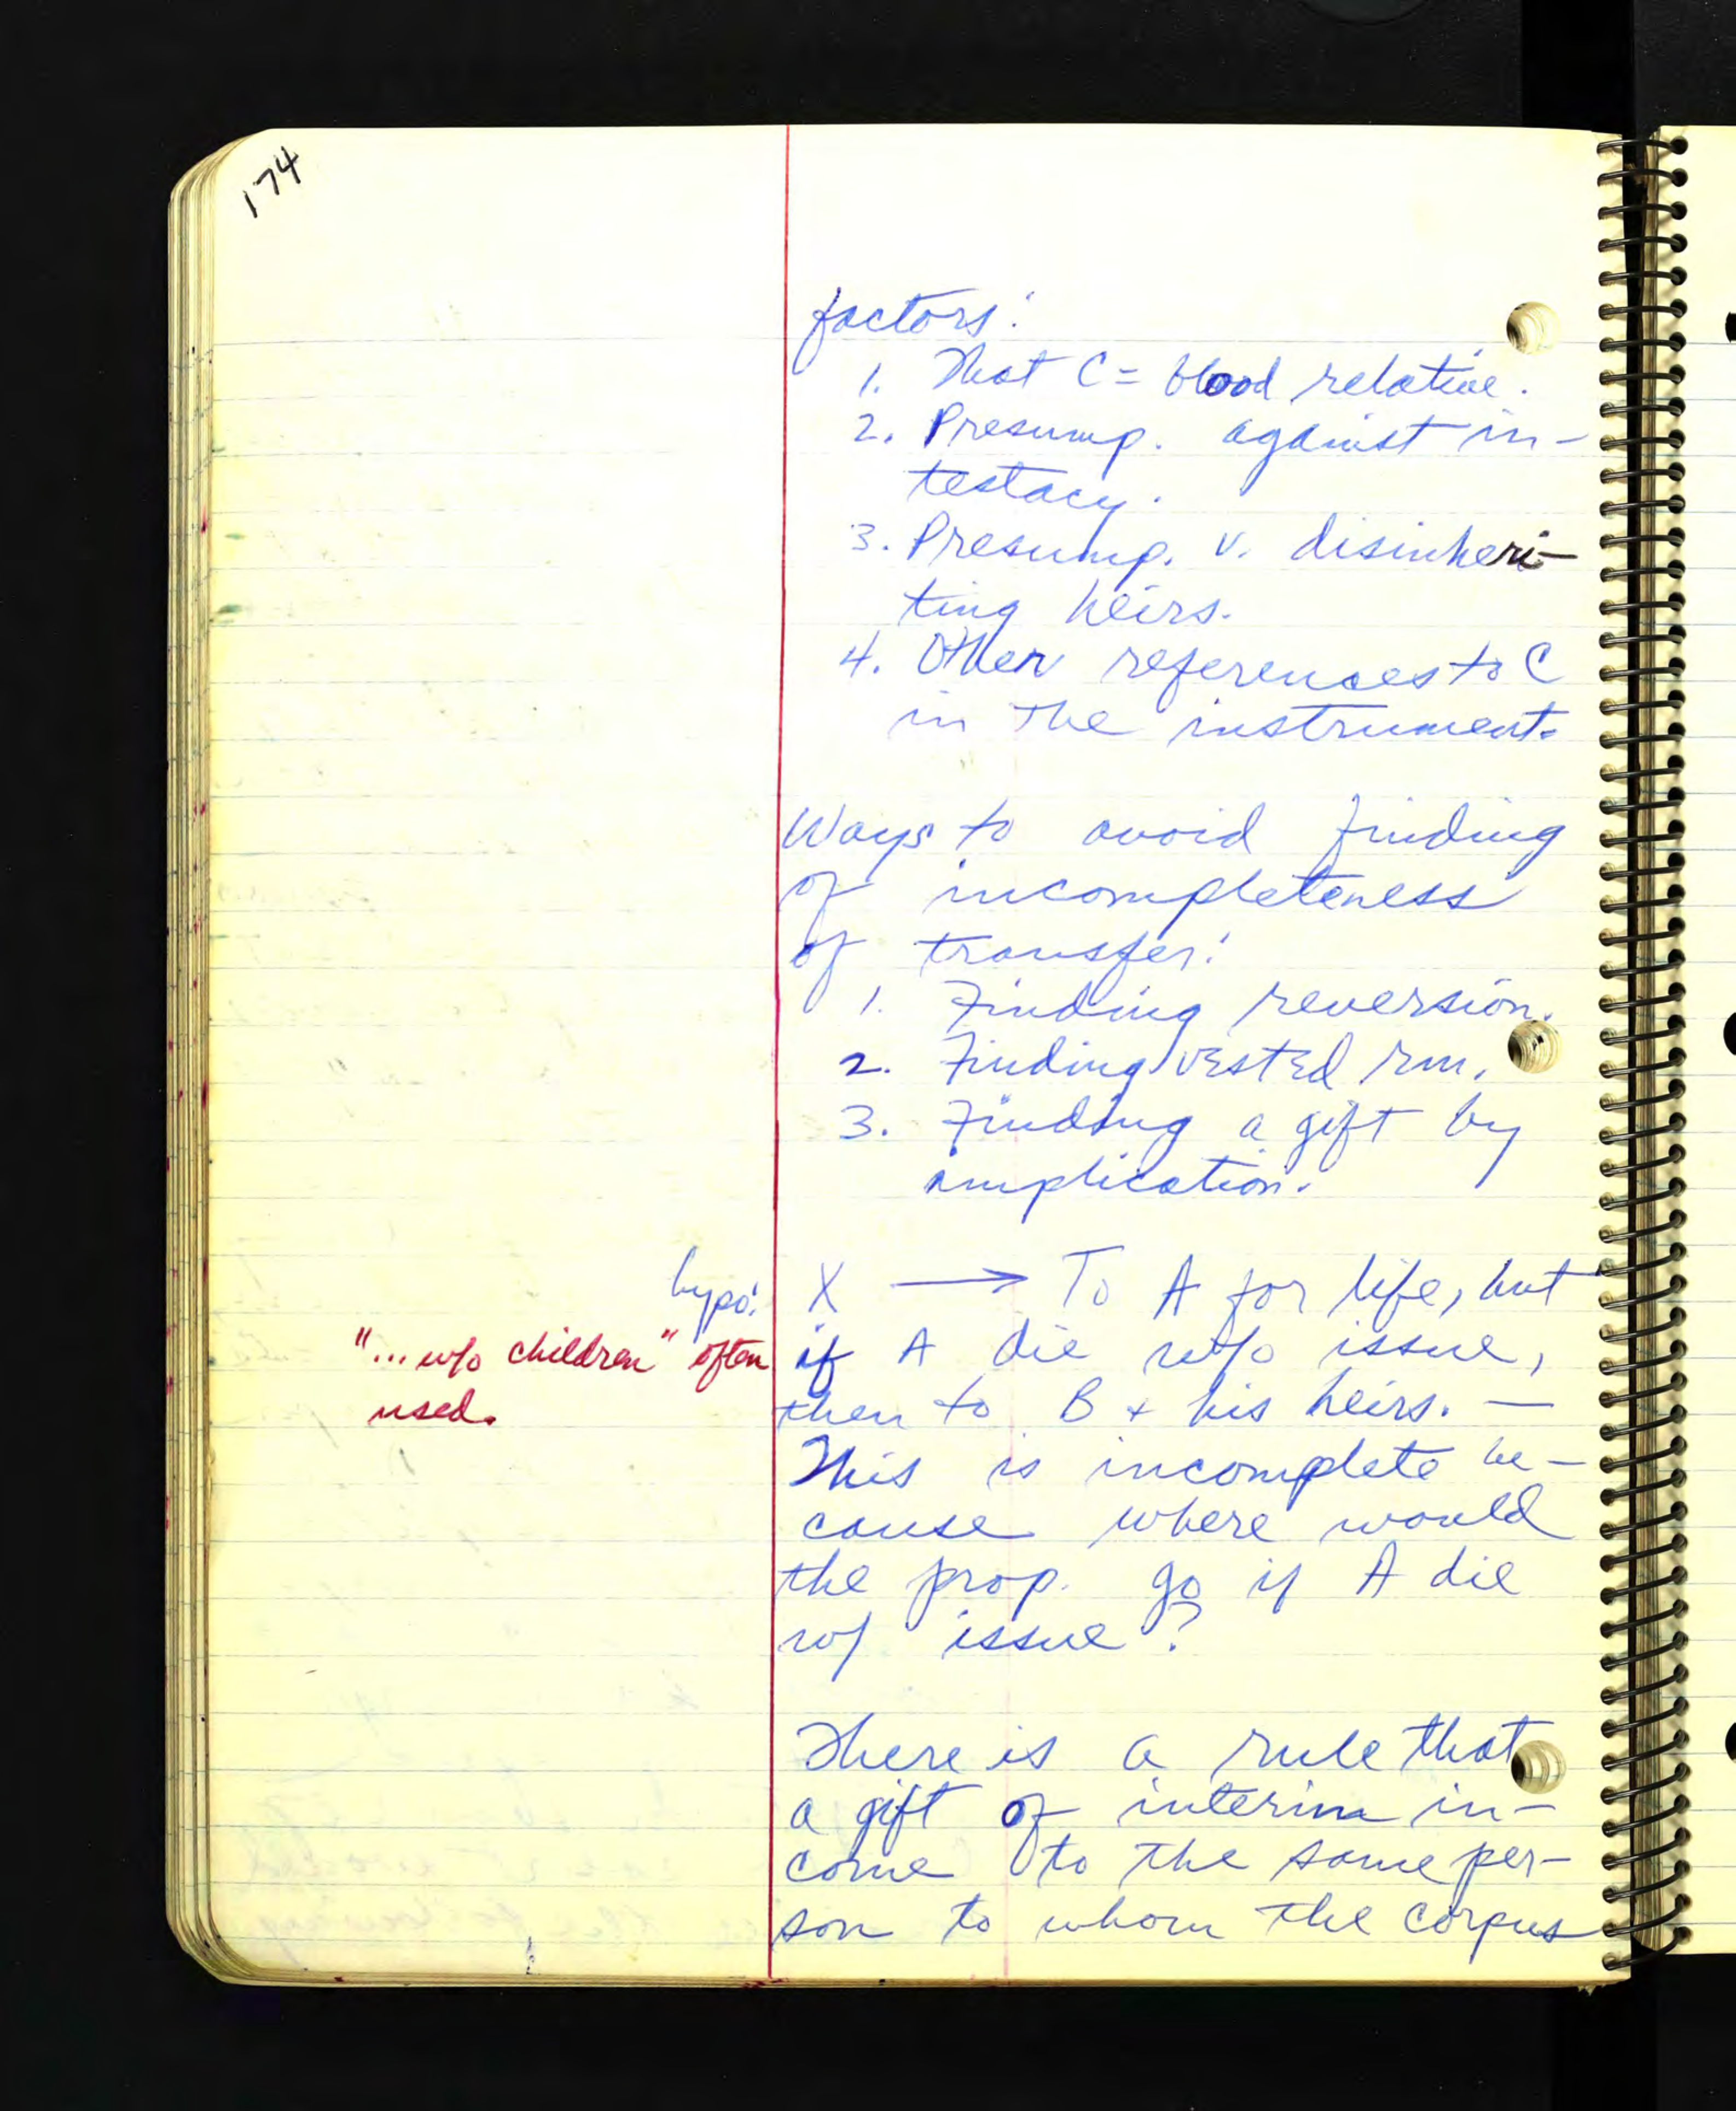 174
factors:
1. That C = blood relative.
2. Presump. against in-
testacy.
3. Presump. v. disinheri-
ting heirs.
4. Other references to C
in the instrument.
Ways to avoid finding
of incompleteness
of transfer:
1. Finding reversion.
2. Finding vested rm.
3. Finding a gift by
implication.
hypo: X → To A for life, but
"... w/o children" often if A die w/o issue,
used. then to B + his heirs. —
This is incomplete be-
cause where would
the prop. go if A die
w/ issue?
There is a rule that
a gift of interim in-
come to the same per-
son to whom the corpus